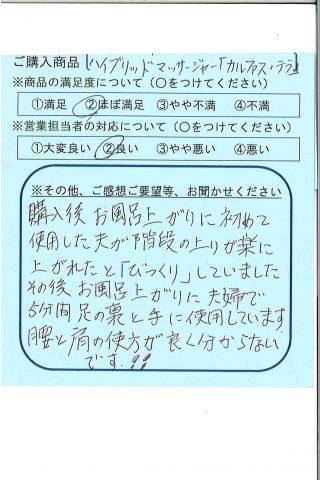 ご購入商品 ハイブリッドマッサージャー「カルアス・テラ」
※商品の満足度について（〇をつけてください）
①満足 ②ほぼ満足 ③やや不満 ④不満
※営業担当者の対応について（〇をつけてください）
①大変良い ②良い ③やや悪い ④悪い
※その他、ご感想ご要望等、お聞かせください
購入後お風呂上がりに初めて
使用した夫が階段の上りが楽に
上がれたと「びっくり」していました
その後お風呂上がりに夫婦で
5分間足の裏と手に使用しています
腰と肩の使方が良く分からない
です。!!